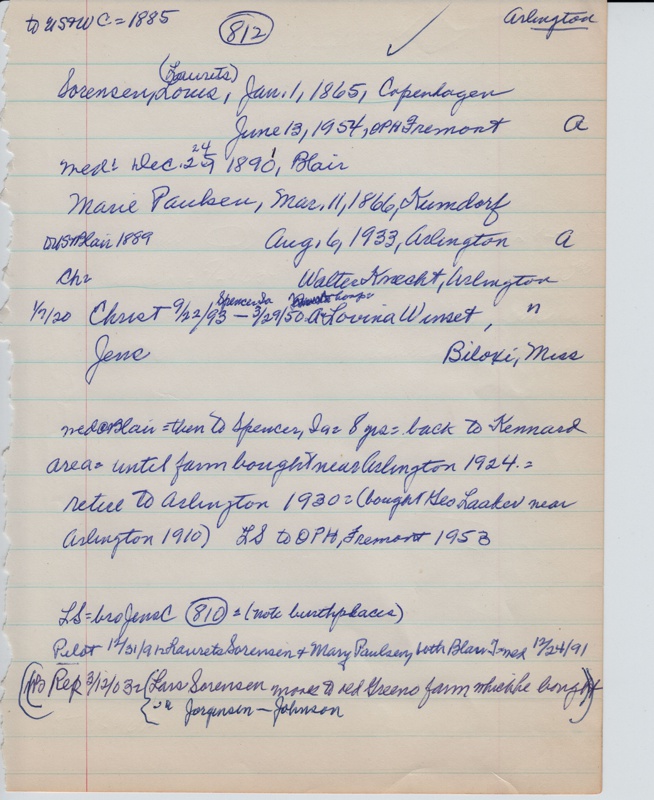 to US+WC = 1885
812
Arlington
(Laurets)
Sorensen, Louis, Jan. 1, 1865, Copenhagen
June 13, 1954, OPH Fremont A
med: Dec. 24 1890, Blair
Marie Paulsen, Mar. 11, 1866, Kumdorf
Blair 1889 Aug. 6, 1933, Arlington A
Ch: Walter Knecht, Arlington
Spencer, Ia
1/7/20 Christ 9/22/93 – 3/29/50 A Lovina Winset, "
Jens Biloxi, Miss
med @ Blair = then to Spencer, Ia = 8 yrs = back to Kennard
area = until farm bought near Arlington 1924. =
retire to Arlington 1930 = (bought Geo Laaker near
Arlington 1910) LS to OPH, Fremont 1953
LS = bro Jens C 810 = (note birthplaces)
Pilot 12/31/91 = Laurets Sorensen + Mary Paulsen, both Blair T = med 12/24/91
Rep 3/12/03 = (Lars Sorensen moves to old Greeno farm which he bought
Jorgensen – Johnson